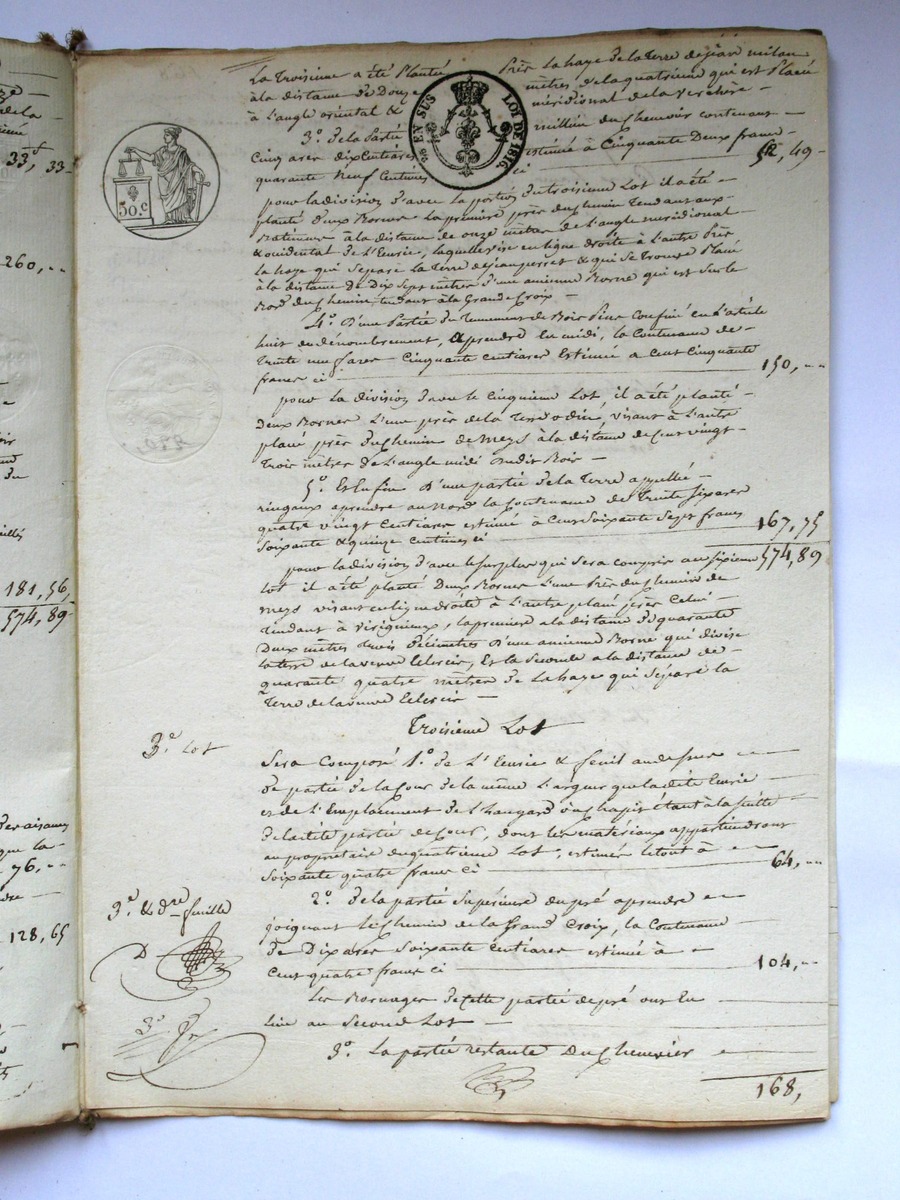 La Troisieme a été Planté Près la haye de la terre de jean milan
à la distance de Douze mètres de la quatrieme qui est Placé
à L'angle oriental & méridional de la verchere —
EN SUS LOI DE 1816.
50.c
3.º De la Partie millieu du chenevier contenant
Cinq ares dix Centiares estimée à Cinquante Deux francs
quarante Neuf Centimes ci 52, 49
pour la division d'avec la portion du troisieme Lot il a été
planté deux Bornes La première près du chemin Tendant aux
Batimens à la distance de onze mètres de l'angle méridional
& occidental de L'Ecurie, laquelle vise en ligne droite à L'autre Près
La haye qui Separe La Terre de jean perret & qui se trouve Placé
à la distance de Dix Sept mètres d'une ancienne Borne qui est sur le
Bord du chemin tendant à la Grande Croix —
4.º D'une Partie du Tennement de Bois Pins Confiné en L'article
huit du dénombrement, à prendre En midi, la Contenance de
Trente un fares Cinquante centiares Estimée a Cent Cinquante
francs ci 150, ""
pour La division d'avec le Cinquieme Lot, il a été planté
Deux Bornes L'une près de la Terre visant à L'autre
placé près du Chemin de Meys à la distance de Cent vingt
Trois mètres de L'angle midi dudit Bois —
5.º Et Enfin D'une partie de la Terre appellée
ringaux a prendre au Nord la Contenance de Trente Six ares
quatre vingt Centiares estimée à Cent Soixante Sept francs
Soixante & quinze centimes ci 167, 75
574, 89
pour la division d'avec le Surplus qui Sera compris au Sixieme
Lot il a été planté Deux Bornes L'une Près du Chemin de
Meys visant en ligne droite à L'autre placé près Celui
Tendant à Virigneux, la premiere a la distance de quarante
Deux mètres trois décimètres d'une ancienne Borne qui divise
la terre de la veuve Et la Seconde a la distance de
quarante quatre mètres de La haye qui Sépare la
Terre de la veuve
Troisieme Lot
3.e Lot
Sera Composé 1.º de L'Ecurie & fenil au dessus
de partie de la Cour de la même Largeur que la dite Ecurie
et de L'Emplacement de L'hangard ou chapit étant à la suitte
de la dite partie de Cour, dont les matériaux appartiendront
au propriétaire du quatrieme Lot, estimés le tout à
Soixante quatre francs ci 64, ""
3.e & d.re feuille
2.º De la partie Supérieure du pré a prendre
joignant Le Chemin de la Grand Croix, la Contenance
de Dix ares Soixante Centiares estimée à
Cent quatre francs ci 104, ""
Les Bornages de Cette partie de pré ont Eu
Lieu au Second Lot —
3.º La partie restante Du Chenevier
168,
33, 33
260, ""
181, 56,
574, 89
76, ""
128, 65